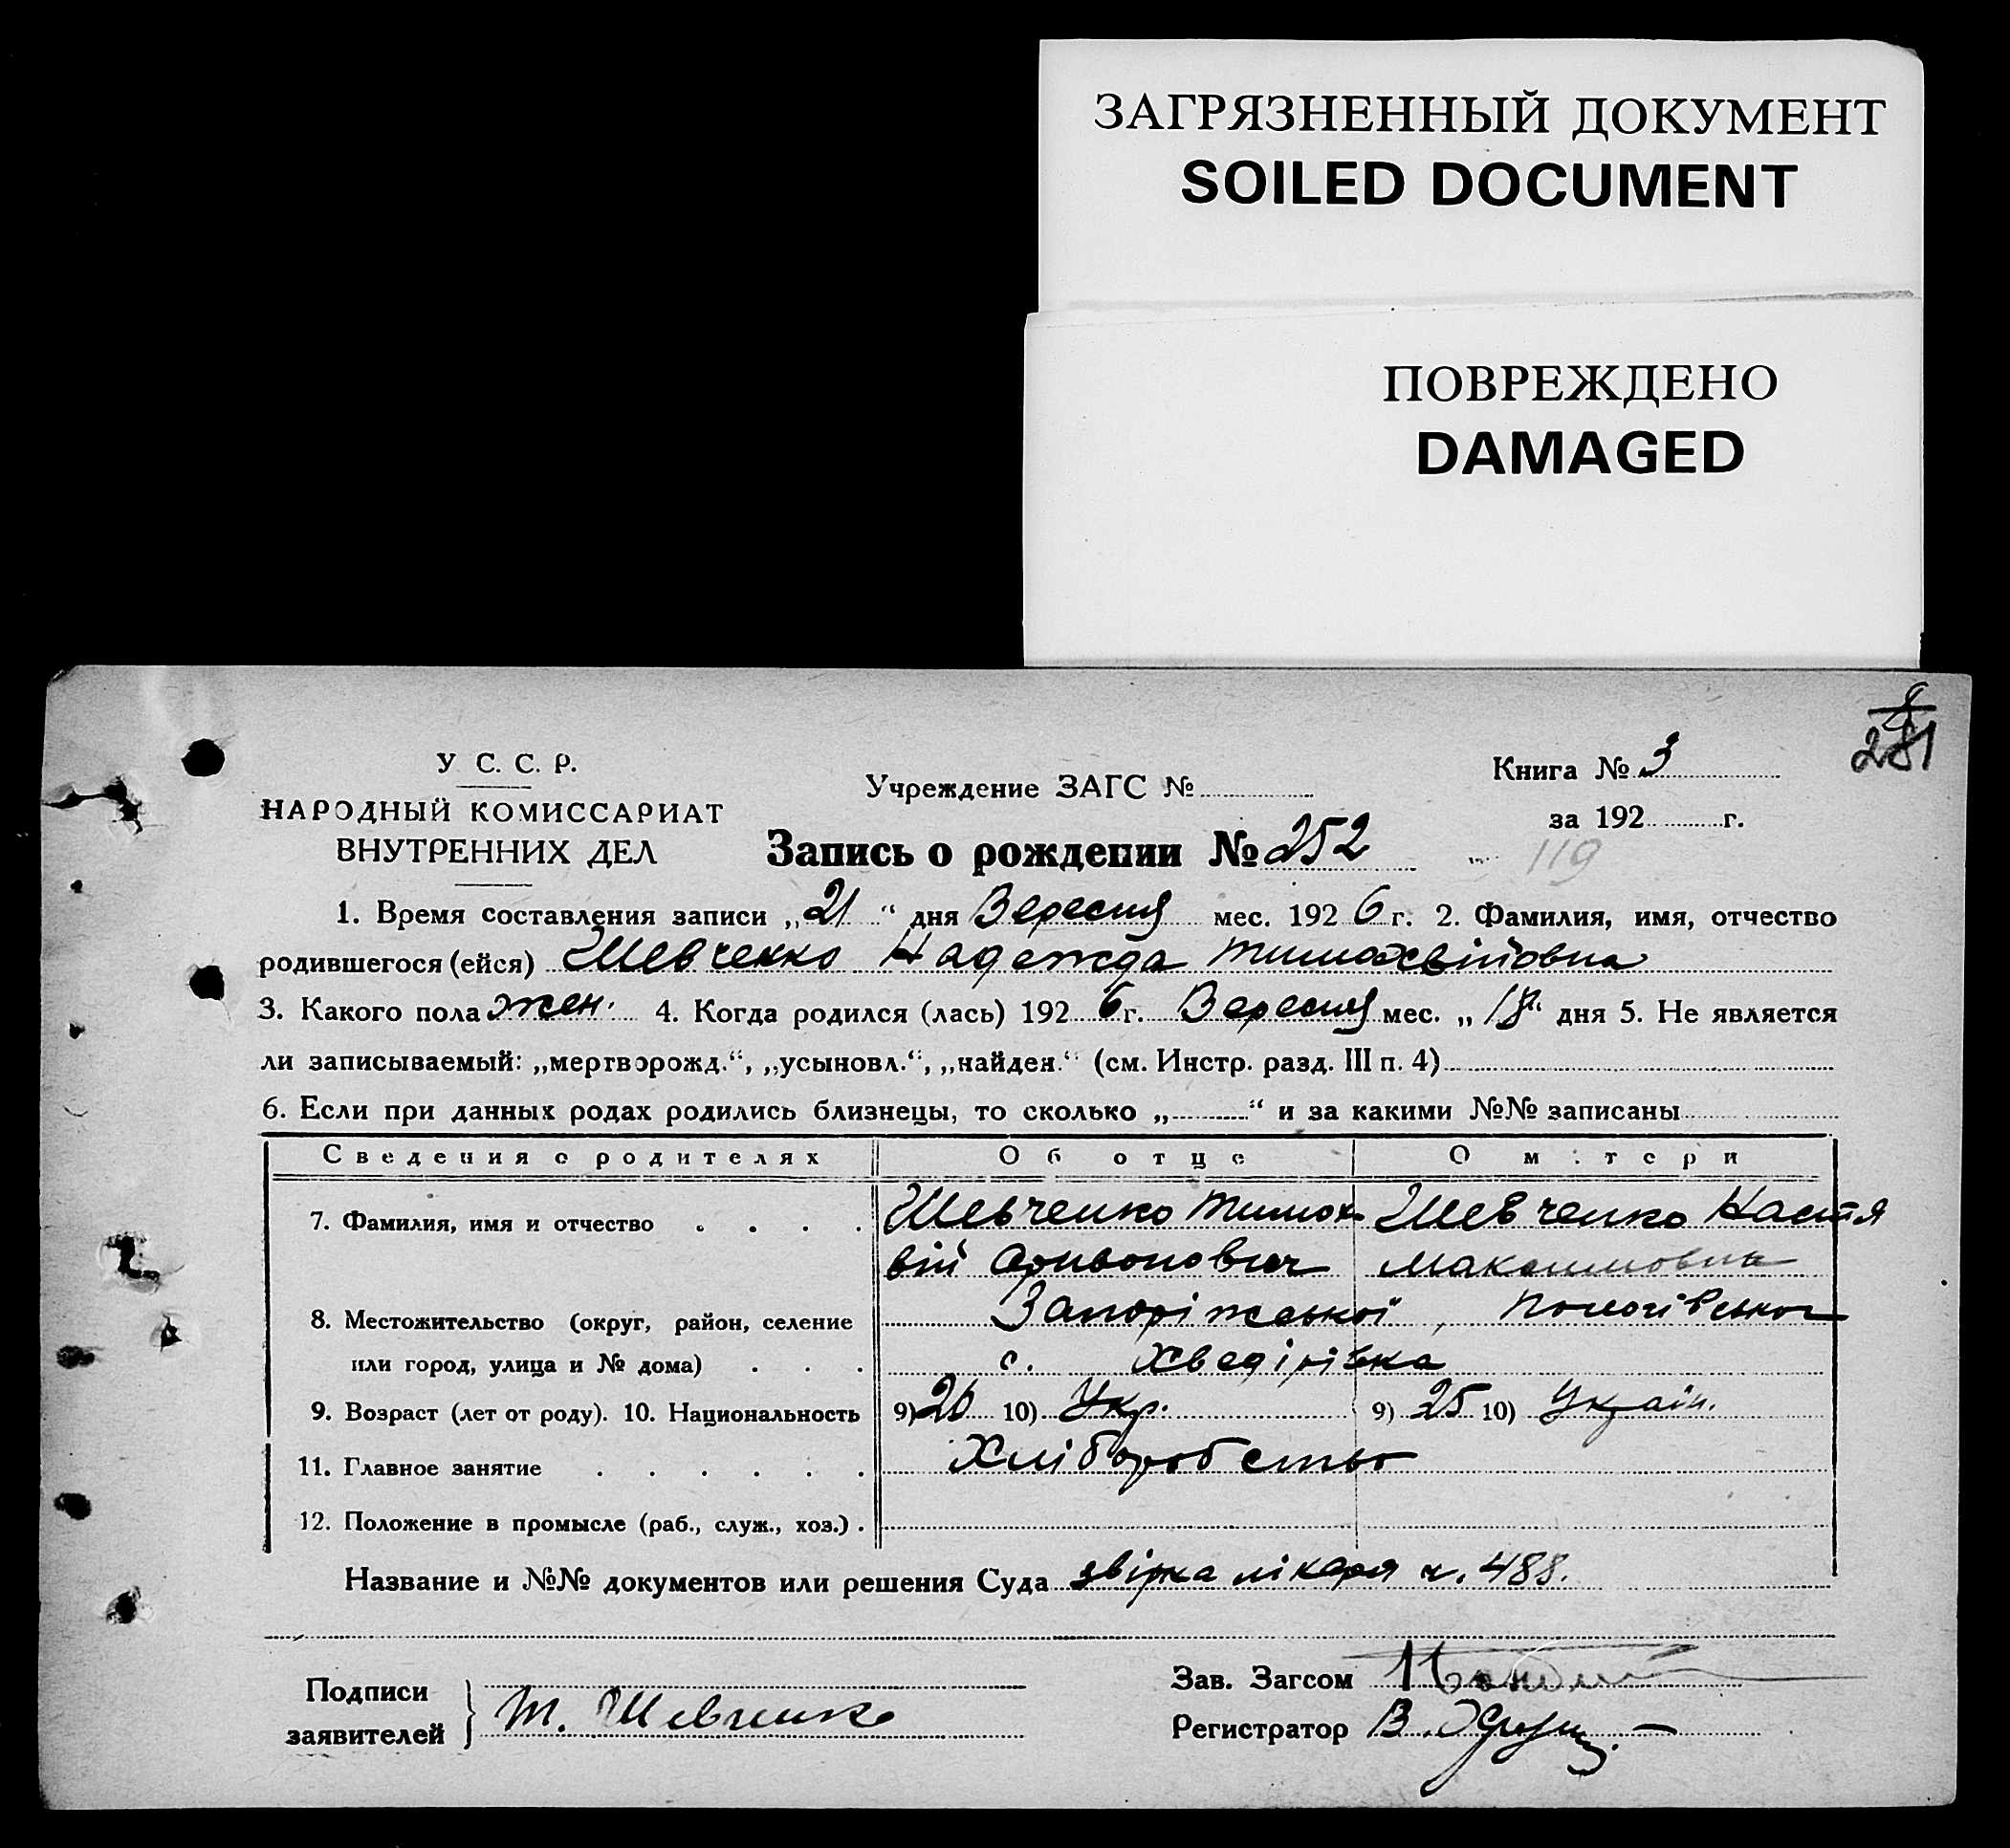 ЗАГРЯЗНЕННЫЙ ДОКУМЕНТ
SOILED DOCUMENT
ПОВРЕЖДЕНО
DAMAGED
281
У С. С. Р.
НАРОДНЫЙ КОМИССАРИАТ
ВНУТРЕННИХ ДЕЛ
Учреждение ЗАГС №
Книга № 3
за 192 г.
Запись о рождении № 252
119
1. Время составления записи „21“ дня Вересня мес. 1926 г. 2. Фамилия, имя, отчество
родившегося (ейся) Шевченко Надежда Тимохвійовна
3. Какого пола жен. 4. Когда родился (лась) 1926 г. Вересня мес. „18“ дня 5. Не является
ли записываемый: „мертворожд.“, „усыновл.“, „найден.“ (см. Инстр. разд. III п. 4)
6. Если при данных родах родились близнецы, то сколько „ “ и за какими №№ записаны
Сведения о родителях Об отце О м.тери
7. Фамилия, имя и отчество Шевченко Тимох Шевченко Настя
вій Максимовна
8. Местожительство (округ, район, селение Запоріжської, Пологівськог
или город, улица и № дома) с. Хведірівка
9. Возраст (лет от роду). 10. Национальность 9) 26 10) Укр. 9) 25 10) Україн.
11. Главное занятие Хліборобство
12. Положение в промысле (раб., служ., хоз.)
Название и №№ документов или решения Суда звірка лікаря ч. 488.
Подписи
заявителей Т. Шевченко
Зав. Загсом
Регистратор В.